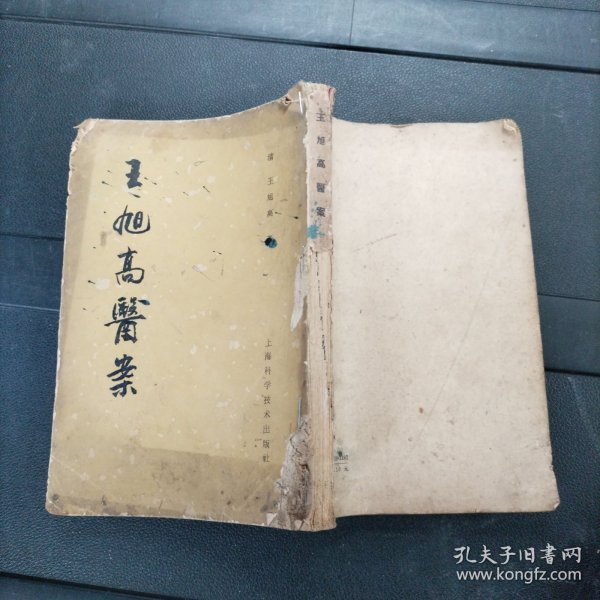 王旭高醫案
清 王旭高
上海科学技术出版社
王旭高醫案
孔夫子旧书网
www.kongfz.com